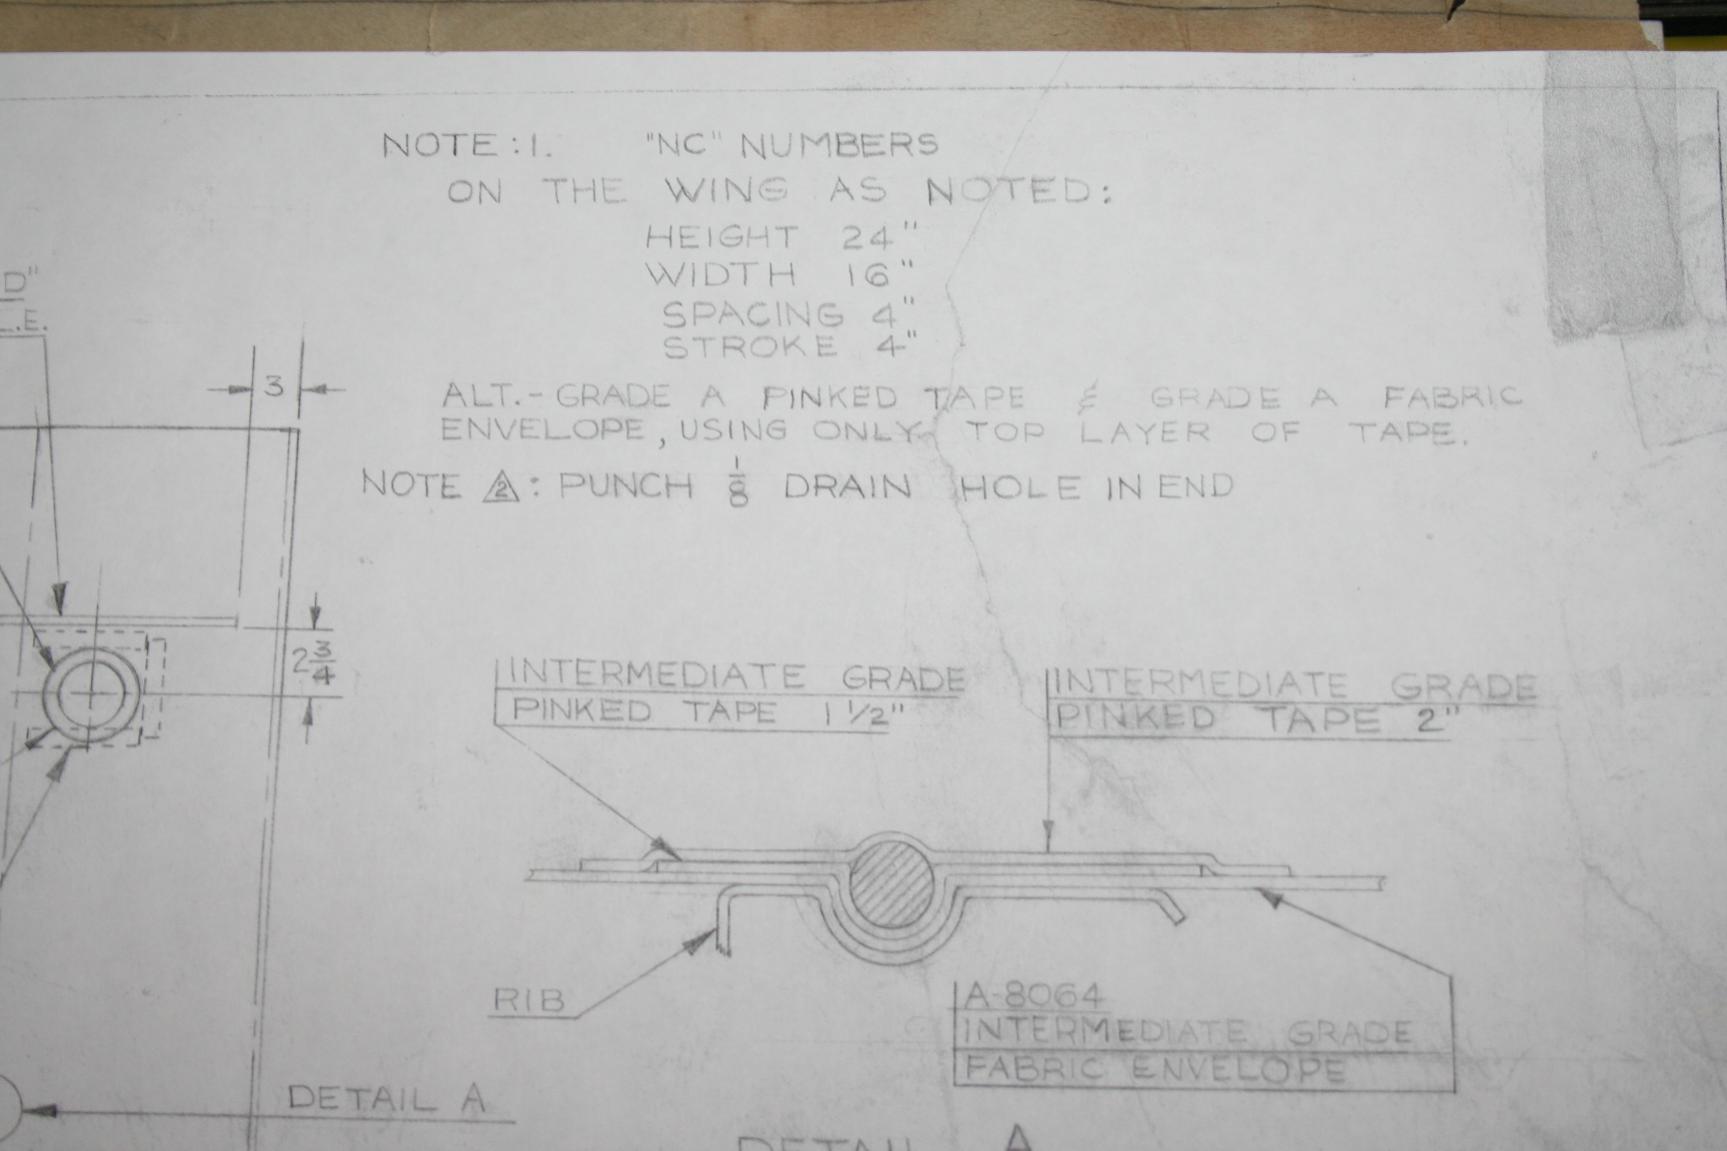 NOTE : 1. "NC" NUMBERS
ON THE WING AS NOTED:
HEIGHT 24"
WIDTH 16"
SPACING 4"
STROKE 4"
ALT. - GRADE A PINKED TAPE & GRADE A FABRIC
ENVELOPE, USING ONLY TOP LAYER OF TAPE.
NOTE 2 : PUNCH 1/8 DRAIN HOLE IN END
D"
L.E.
3
2 3/4
INTERMEDIATE GRADE
PINKED TAPE 1 1/2"
INTERMEDIATE GRADE
PINKED TAPE 2"
RIB
A-8064
INTERMEDIATE GRADE
FABRIC ENVELOPE
DETAIL A
DETAIL A